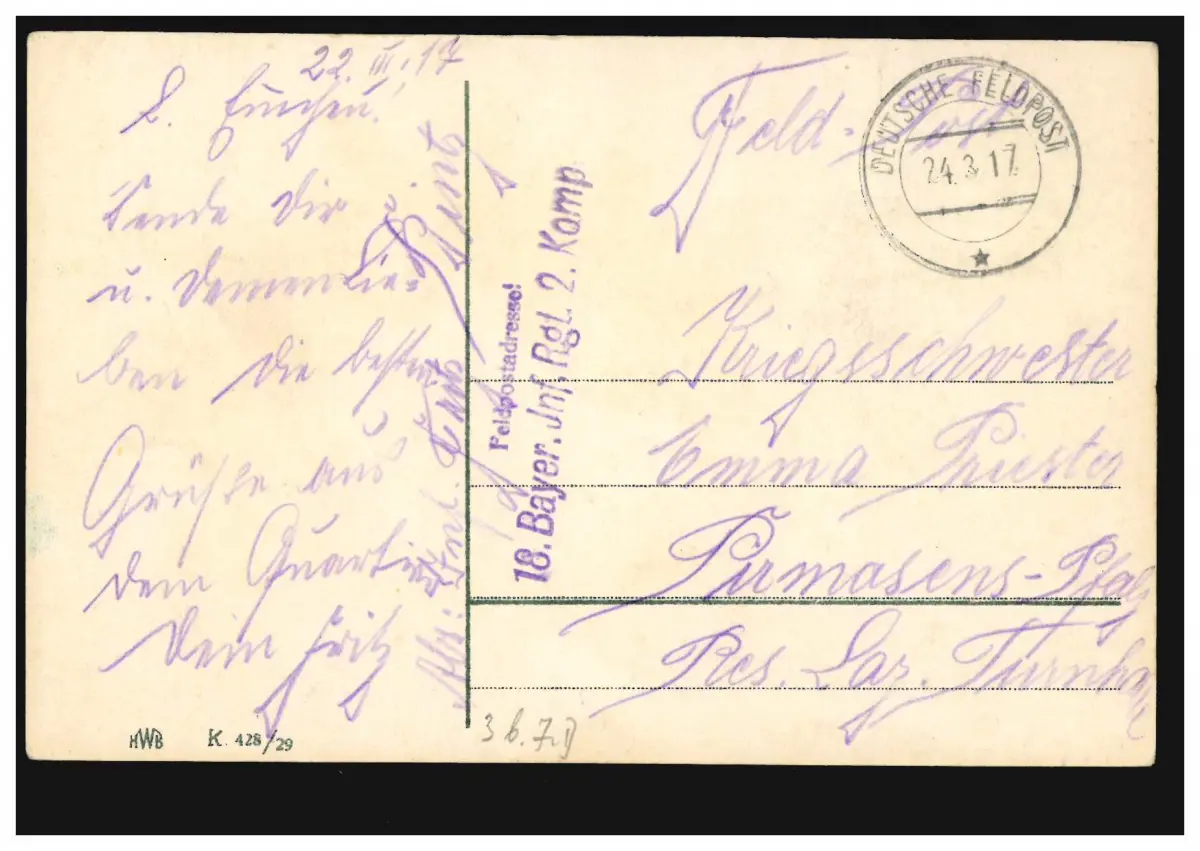 22. III. 17
L. Emchen!
Sende Dir
u. Deinen Lie-
ben die besten
Grüße aus
dem Quartier
Dein Fritz
Abs: Inf. Fritz
Feldpostadresse!
18. Bayer. Inf. Rgt. 2. Komp.
Feld-Post
DEUTSCHE FELDPOST
24.3.17
Kriegsschwester
Emma Priester
Pirmasens-Pfalz
Res. Laz. Turnhalle
HWB K. 428/29
3 b. 7.